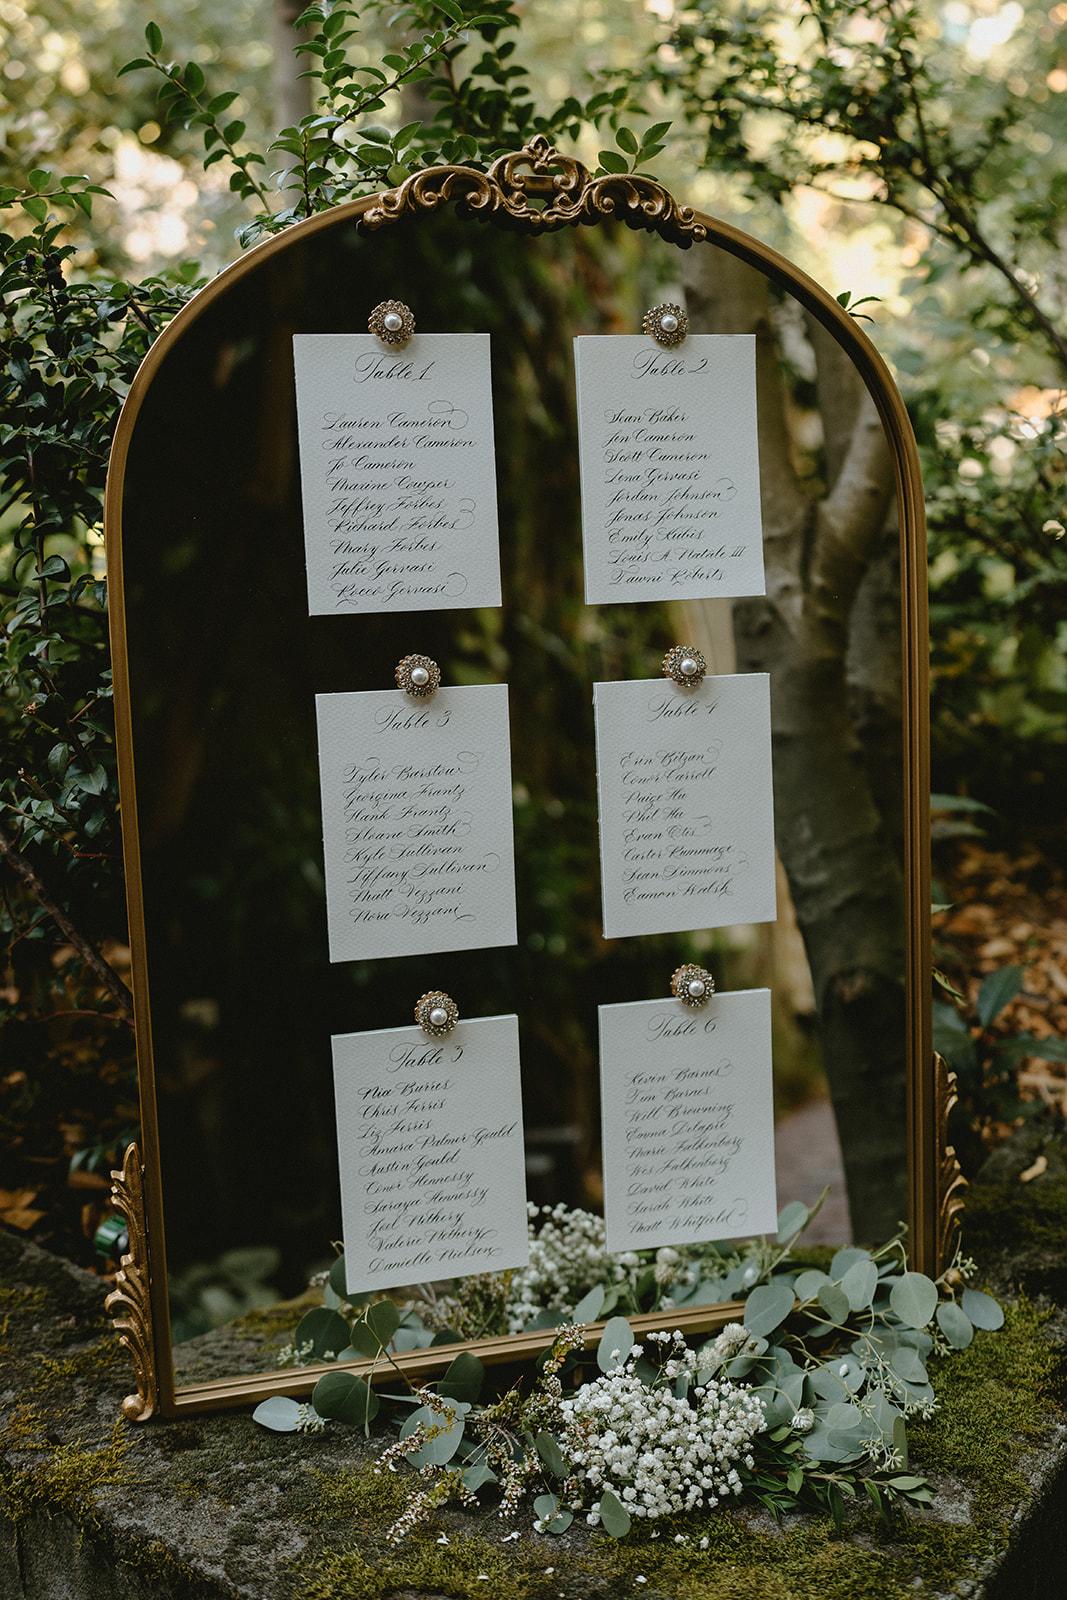 Table 1
Lauren Cameron
Alexander Cameron
Jo Cameron
Maxine Cowper
Jeffrey Forbes
Richard Forbes
Mary Forbes
Julie Gervasi
Rocco Gervasi
Table 2
Sean Baker
Jen Cameron
Scott Cameron
Lena Gervasi
Jordan Johnson
Jonas Johnson
Emily Kubis
Louis A. Natale III
Tawni Roberts
Table 3
Tyler Barstow
Georgina Frantz
Hank Frantz
Sloane Smith
Kyle Sullivan
Tiffany Sullivan
Matt Vezzani
Nora Vezzani
Table 4
Erin Betzan
Conor Carroll
Paige Hu
Phil Hu
Evan Otis
Carter Rummage
Sean Simmons
Eamon Walsh
Table 5
Nia Burris
Chris Ferris
Liz Ferris
Amara Palmer Gould
Austin Gould
Conor Hennessy
Sarayce Hennessy
Joel Nethery
Valerie Nethery
Danielle Nielsen
Table 6
Kevin Barnes
Tim Barnes
Will Browning
Emma Delapré
Marie Falkenborg
Wes Falkenborg
David White
Sarah White
Matt Whitfield